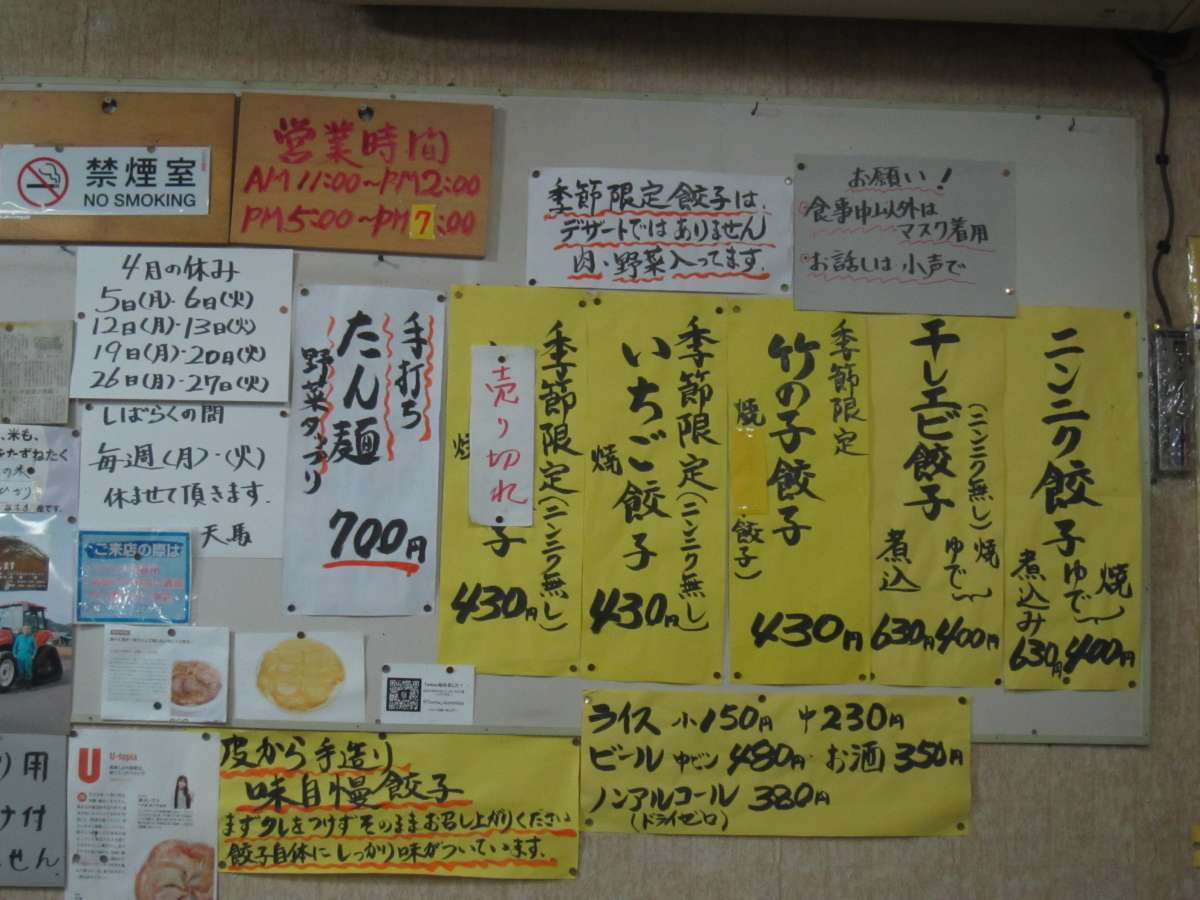 禁煙室
NO SMOKING
営業時間
AM11:00～PM2:00
PM5:00～PM7:00
季節限定餃子は、
デザートではありません
肉・野菜入ってます。
お願い!
食事中以外は
マスク着用
お話しは小声で
4月の休み
5日(月)・6日(火)
12日(月)・13日(火)
19日(月)・20日(火)
26日(月)・27日(火)
しばらくの間
毎週(月)・(火)
休ませて頂きます。
天馬
ご来店の際は
手打ち
たん麺
野菜タップリ
700円
ニンニク餃子
焼
ゆで
400円
煮込み
630円
干しエビ餃子
(ニンニク無し)
焼
ゆで
400円
煮込
630円
季節限定
竹の子餃子
焼
餃子)
430円
季節限定(ニンニク無し)
いちご餃子
焼
430円
季節限定(ニンニク無し)
売り切れ
子
焼
430円
ライス 小150円 中230円
ビール 中ビン480円・お酒350円
ノンアルコール 380円
(ドライゼロ)
皮から手造り
味自慢餃子
まずタレをつけずそのままお召し上がりください
餃子自体にしっかり味がついています。
U
U-topia
、米も、
の米
り用
け付
せん